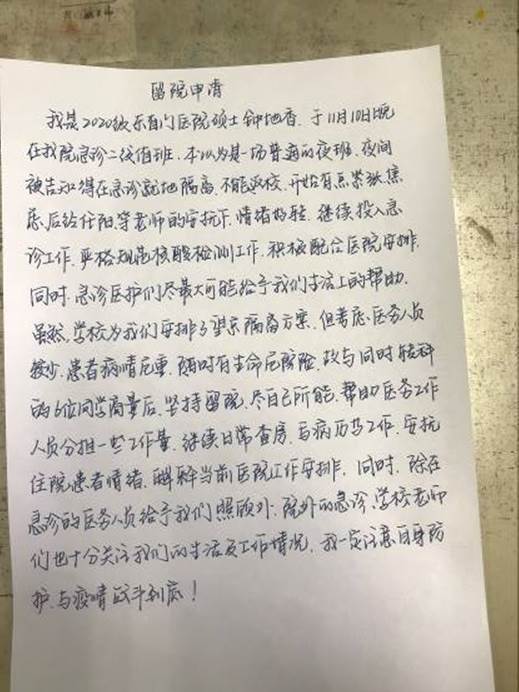 留院申请
我是2020级东直门医院硕士钟地香，于11月10日晚
在我院急诊二级值班，本以为是一场普通的夜班，夜间
被告知得在急诊就地隔离，不能返校，开始有点紧张焦
虑，后经任阳等老师的安抚下，情绪好转，继续投入急
诊工作，严格规范核酸检测工作，积极配合医院安排，
同时，急诊医护们尽最大可能给予我们生活上的帮助。
虽然，学校为我们安排了望京隔离方案，但考虑医务人员
较少，患者病情危重，随时有生命危险，故与同时转科
的6位同学商量后，坚持留院，尽自己所能，帮助医务工作
人员分担一些工作量，继续日常查房，写病历等工作，安抚
住院患者情绪，解释当前医院工作安排，同时，除在
急诊的医务人员给予我们照顾外，院外的急诊、学校老师
们也十分关注我们的生活及工作情况，我一定注意自身防
护，与疫情战斗到底！